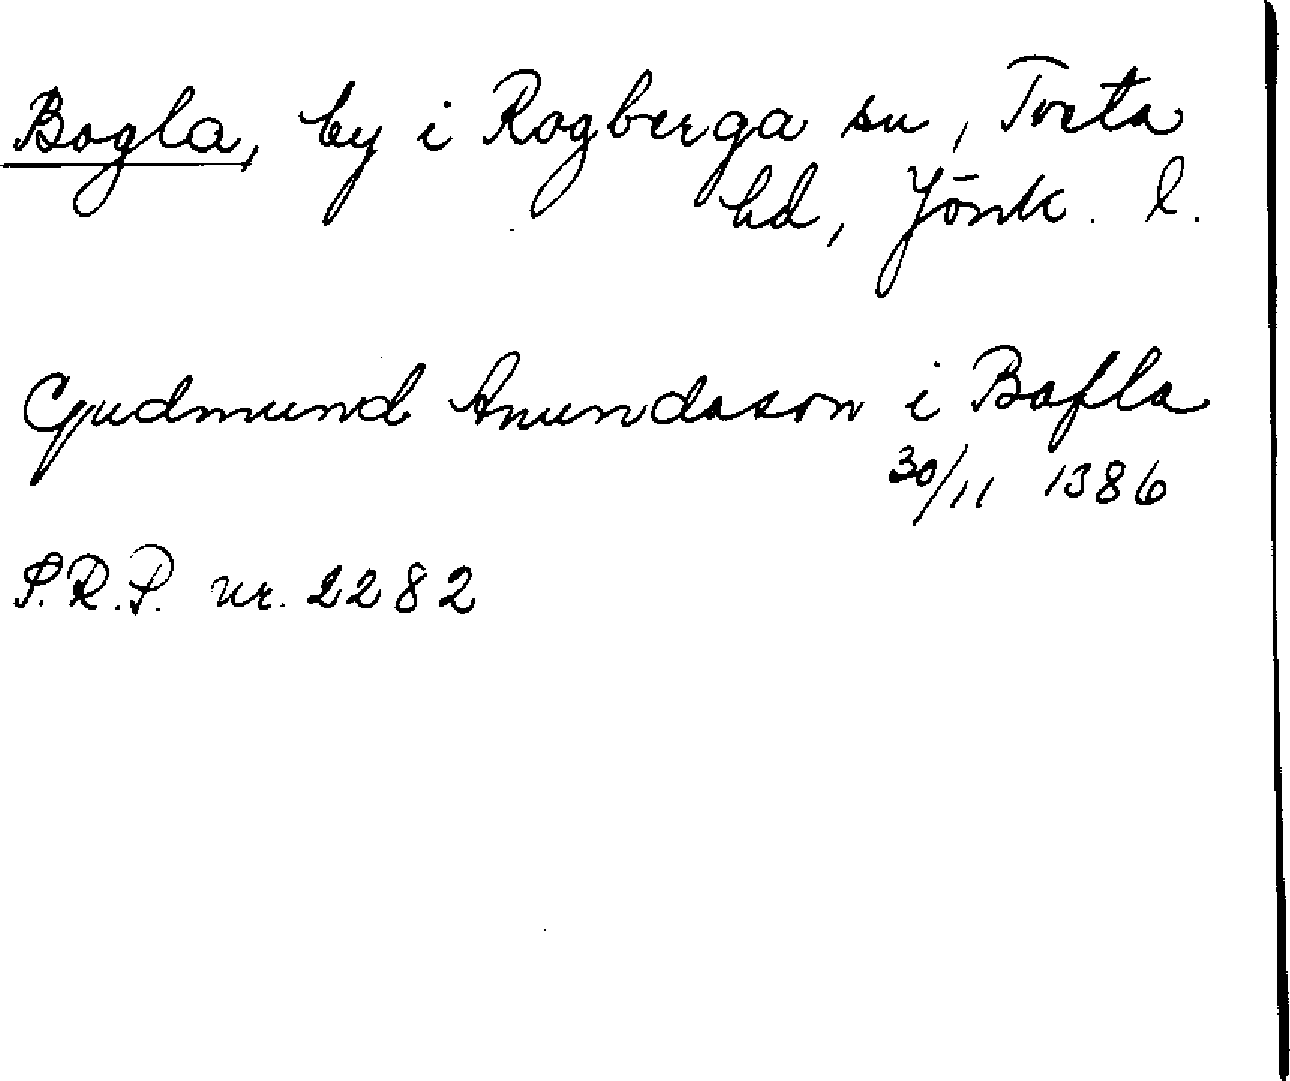 Bogla, by i Rogberga sn, Tveta
hd, Jönk. l.
Gudmund Anundason i Bofla
30/11 1386
S.R.P. nr. 2282